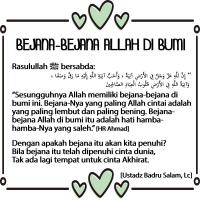 BEJANA-BEJANA ALLAH DI BUMI
Rasulullah ﷺ bersabda:
" إِنَّ لِلَّهِ عَزَّ وَجَلَّ فِي الْأَرْضِ آنِيَةً ، وَأَحَبُّ آنِيَةِ اللَّهِ إِلَيْهِ مَا رَقَّ مِنْهَا وَصَفَا ،
وَآنِيَةُ اللَّهِ فِي الْأَرْضِ قُلُوبُ الْعِبَادِ الصَّالِحِينَ "
"Sesungguhnya Allah memiliki bejana-bejana di
bumi ini. Bejana-Nya yang paling Allah cintai adalah
yang paling lembut dan paling bening. Bejana-
bejana Allah di bumi itu adalah hati hamba-
hamba-Nya yang saleh." [HR Ahmad]
Dengan apakah bejana itu akan kita penuhi?
Bila bejana itu telah dipenuhi cinta dunia,
Tak ada lagi tempat untuk cinta Akhirat.
[Ustadz Badru Salam, Lc]